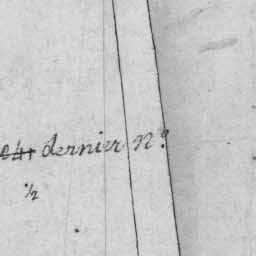 dernier n.º
½